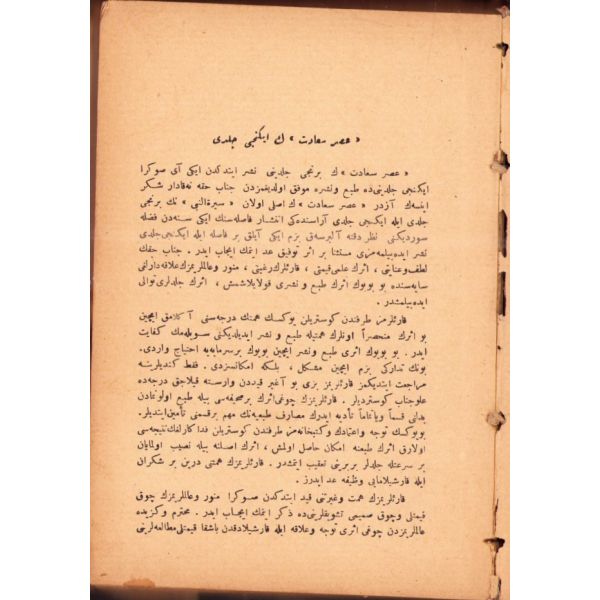 « عصر سعادت » ك ایكنجی جلدی
« عصر سعادت » ك برنجی جلدینی نشر ایتدكدن ایكی آی صوكرا
ایكنجی جلدینی‌ده طبع ونشره موفق اولدیغمزدن جناب حقه نه‌قادار شكر
ایتسه‌ك آزدر. « عصر سعادت » ك اصلی اولان « سیرةالنبی » نك برنجی
جلدی ایله ایكنجی جلدی آراسنده‌كی انتشار فاصله‌سنك ایكی سنه‌دن فضله
سوردیكنی نظر دقته آلیرسه‌ق بزم ایكی آیلق بر فاصله ایله ایكنجی جلدی
نشر ایده‌بیلمه‌مزی مستثنا بر اثر توفیق عد ایتمك ایجاب ایدر. جناب حقك
لطف وعنایتی ، اثرك علمی قیمتی ، قارئلرك رغبتی ، منور وعالملریمزك علاقه‌دارلغی
سایه‌سنده بو بویوك اثرك طبع و نشری قولایلاشمش ، اثرك جلدلری توالی
ایده‌بیلمشدر .
قارئلرمز طرفندن كوستریلن یوكسك همتك درجه‌سنی آكلامق ایچین
بو اثرك منحصراً اونلرك همتیله طبع و نشر ایدیلدیكنی سویله‌مك كفایت
ایدر . بو بویوك اثری طبع ونشر ایچین بویوك بر سرمایه‌یه احتیاج واردی.
بونك تداركی بزم ایچین مشكل ، بلكه امكانسزدی . فقط كندیلرینه
مراجعت ایتدیكمز قارئلرمز بزی بو آغیر قیددن وارسته قیلاجق درجه‌ده
علوجناب كوستردیلر . قارئلریمزك چوغی اثرك بر صحیفه‌سی بیله طبع اولونمادن
بدلنی قسماً ویا تماماً تأدیه ایدرك مصارف طبعیه‌نك مهم بر قسمنی تأمین ایتدیلر.
بویوكسك توجه واعتمادك وكتبخانه‌مز طرفندن كوستریلن فداكارلغك نتیجه‌سی
اولارق اثرك طبعنه امكان حاصل اولمش ، اثرك اصلنه بیله نصیب اولمایان
بر سرعتله جلدلر بربرینی تعقیب ایتمشدر. قارئلریمزك همتنی درین بر شكران
ایله قارشیلامایی وظیفه عد ایدرز .
قارئلریمزك همت وغیرتنی قید ایتدكدن صوكرا منور وعالملریمزك چوق
قیمتلی وچوق صمیمی تشویقلرینی‌ده ذكر ایتمك ایجاب ایدر . محترم و كزیده
عالملریمزدن چوغی اثری توجه و علاقه ایله قارشیلادقدن باشقا قیمتلی مطالعه‌لرینی